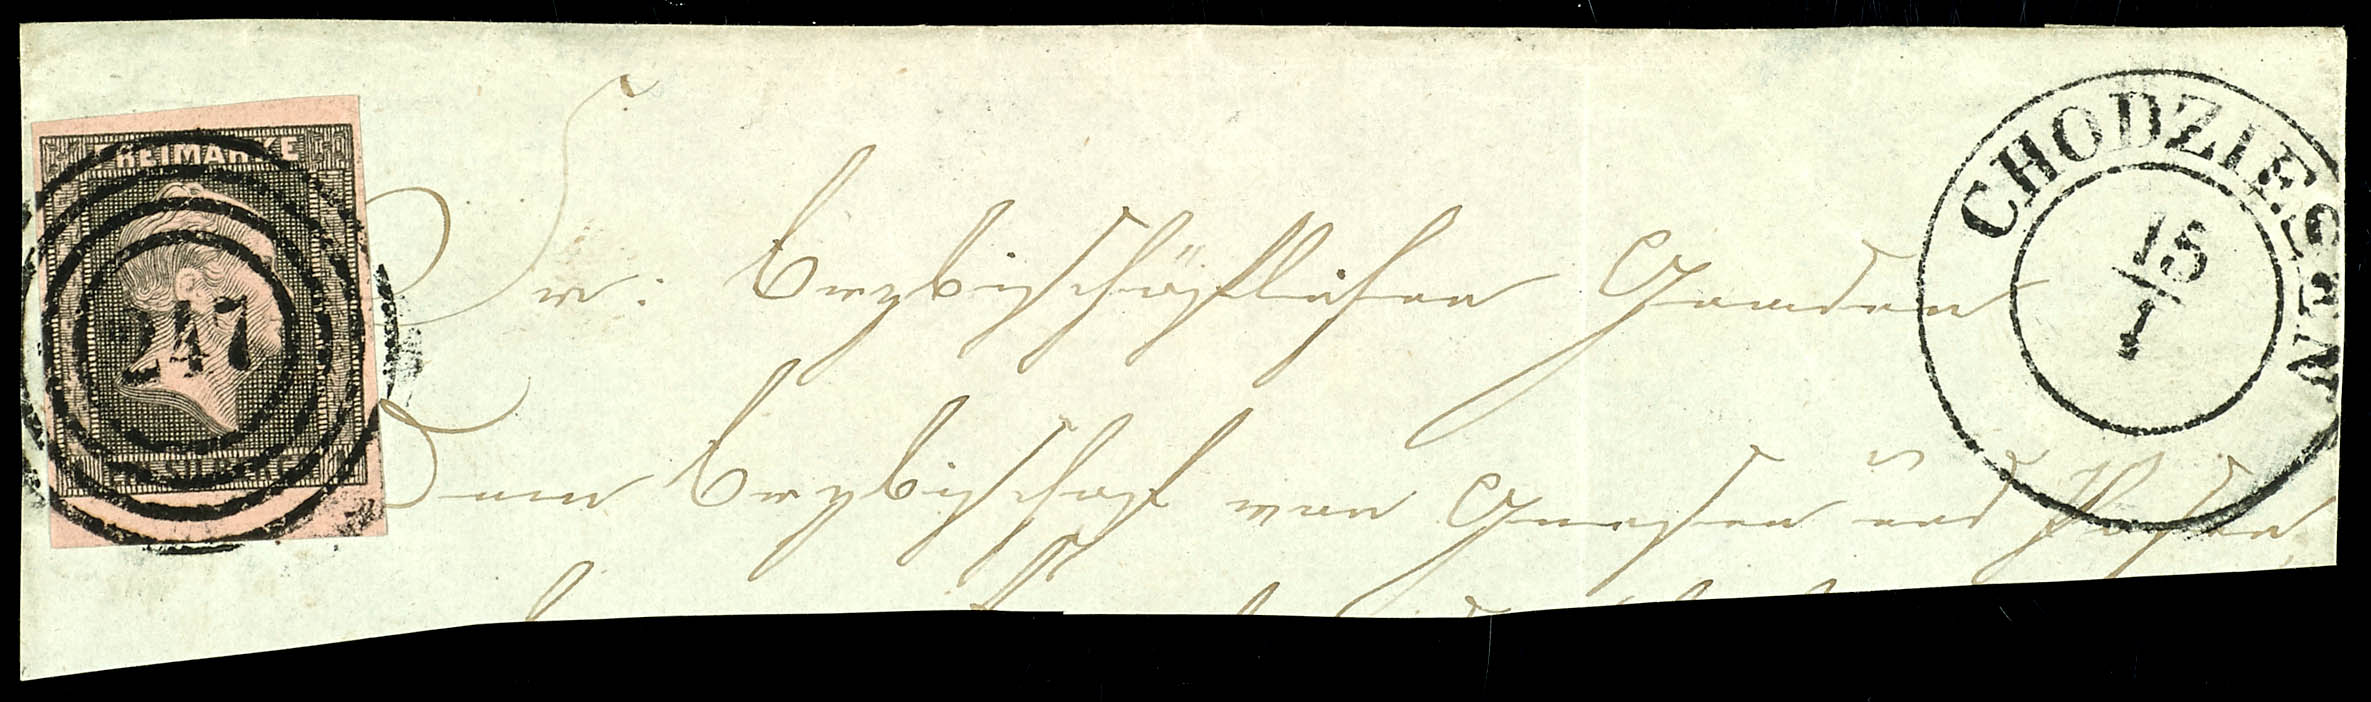 FREIMARKE
247
EIN SILBERGR.
CHODZIESEN
15
1
Sr: Erzbischöflichen Gnaden
dem Erzbischof von Gnesen und Posen